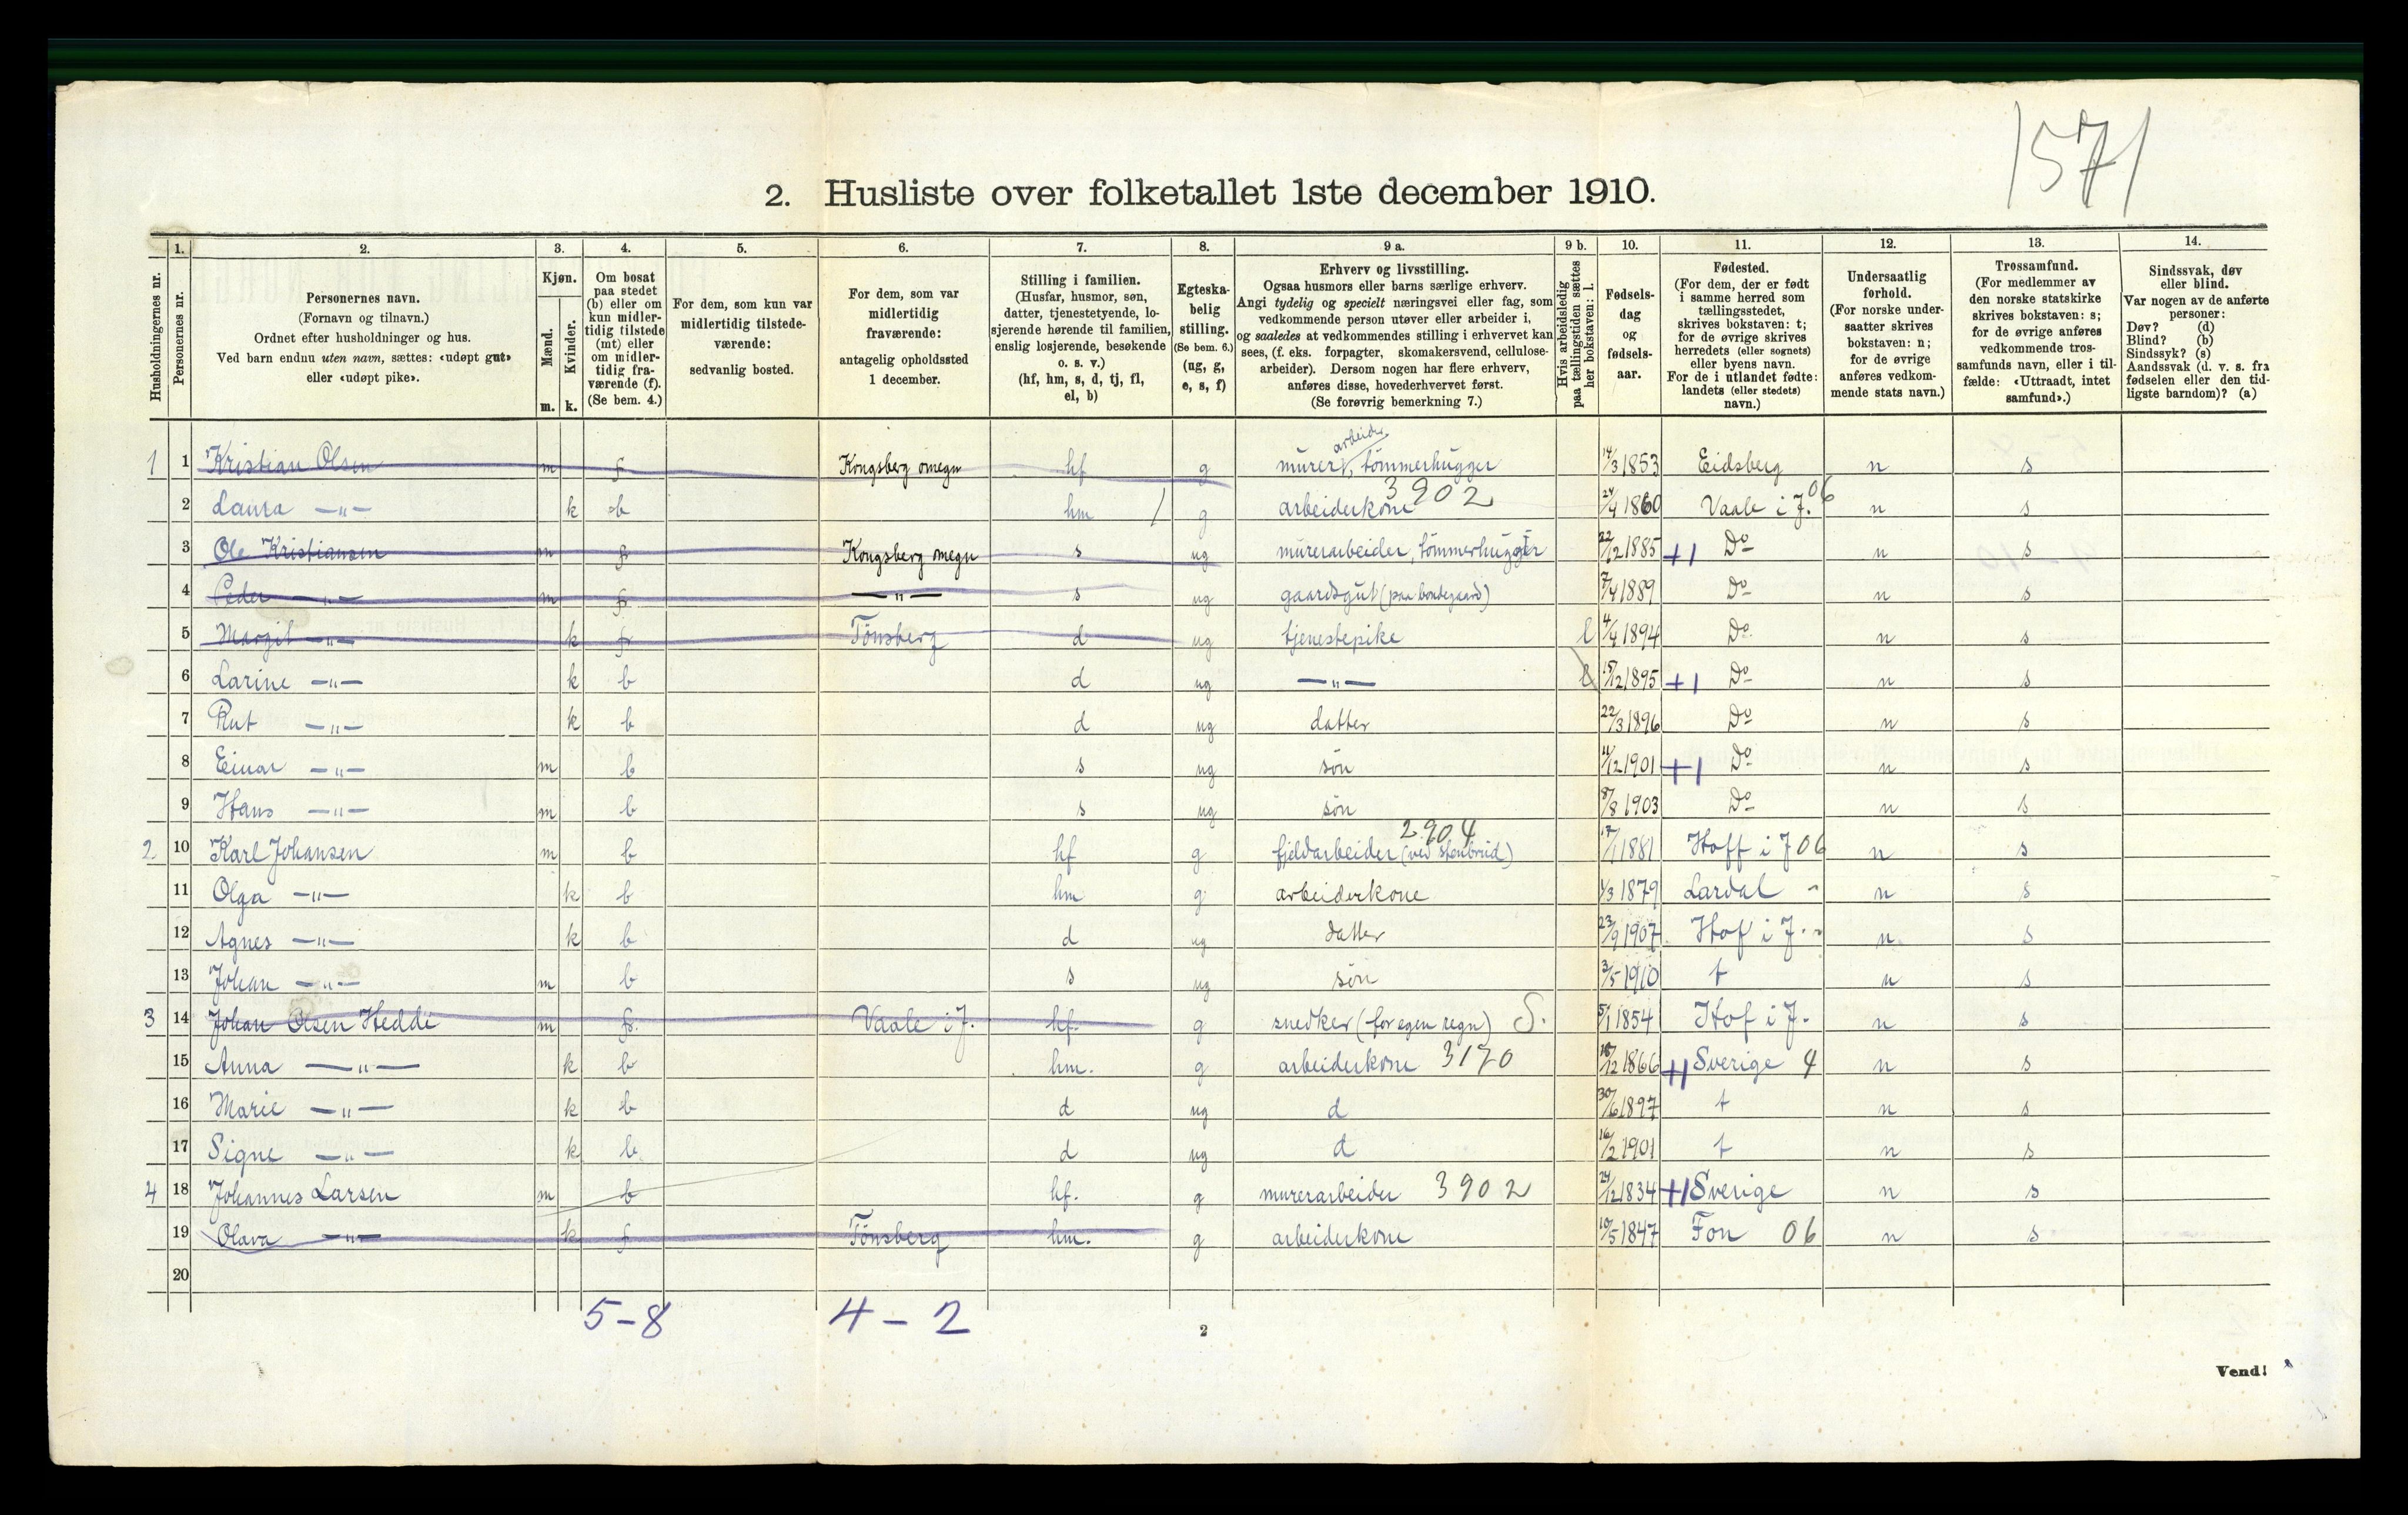 1571
2. Husliste over folketallet 1ste december 1910.
Husholdningernes nr.
1. Personernes nr.
2. Personernes navn. (Fornavn og tilnavn.) Ordnet efter husholdninger og hus. Ved barn endnu uten navn, sættes: «udøpt gut» eller «udøpt pike».
3. Kjøn. Mænd. m. Kvinder. k.
4. Om bosat paa stedet (b) eller om kun midlertidig tilstede (mt) eller om midlertidig fraværende (f). (Se bem. 4.)
5. For dem, som kun var midlertidig tilstedeværende: sedvanlig bosted.
6. For dem, som var midlertidig fraværende: antagelig opholdssted 1 december.
7. Stilling i familien. (Husfar, husmor, søn, datter, tjenestetyende, losjerende hørende til familien, enslig losjerende, besøkende o. s. v.) (hf, hm, s, d, tj, fl, el, b)
8. Egteskabelig stilling. (Se bem. 6.) (ug, g, e, s, f)
9 a. Erhverv og livsstilling. Ogsaa husmors eller barns særlige erhverv. Angi tydelig og specielt næringsvei eller fag, som vedkommende person utøver eller arbeider i, og saaledes at vedkommendes stilling i erhvervet kan sees, (f. eks. forpagter, skomakersvend, cellulosearbeider). Dersom nogen har flere erhverv, anføres disse, hovederhvervet først. (Se forøvrig bemerkning 7.)
9 b. Hvis arbeidsledig paa tællingstiden sættes her bokstaven: l.
10. Fødselsdag og fødselsaar.
11. Fødested. (For dem, der er født i samme herred som tællingsstedet, skrives bokstaven: t; for de øvrige skrives herredets (eller sognets) eller byens navn. For de i utlandet fødte: landets (eller stedets) navn.)
12. Undersaatlig forhold. (For norske undersaatter skrives bokstaven: n; for de øvrige anføres vedkommende stats navn.)
13. Trossamfund. (For medlemmer av den norske statskirke skrives bokstaven: s; for de øvrige anføres vedkommende trossamfunds navn, eller i tilfælde: «Uttraadt, intet samfund».)
14. Sindssvak, døv eller blind. Var nogen av de anførte personer: Døv? (d) Blind? (b) Sindssyk? (s) Aandssvak (d. v. s. fra fødselen eller den tidligste barndom)? (a)
1 1 Kristian Olsen m f Kongsberg omegn hf g murerarbeider, tømmerhugger 14/3 1853 Eidsberg n s
2 Laura —"— k b hm g arbeiderkone 3902 24/4 1860 Vaale i J. 06 n s
3 Ole Kristiansen m f Kongsberg omegn s ug murerarbeider, tømmerhugger 22/12 1885 +1 Do n s
4 Peder —"— m f —"— s ug gaardsgut (paa bondegaard) 7/4 1889 Do n s
5 Margit —"— k f Tønsberg d ug tjenestepike l 4/4 1894 Do n s
6 Larine —"— k b d ug —"— l 15/12 1895 +1 Do n s
7 Rut —"— k b d ug datter 22/3 1896 Do n s
8 Einar —"— m b s ug søn 11/12 1901 +1 Do n s
9 Hans —"— m b s ug søn 8/8 1903 Do n s
2 10 Karl Johansen m b hf g fjeldarbeider (ved stenbrud) 2904 17/1 1881 Hoff i J 06 n s
11 Olga —"— k b hm g arbeiderkone 1/3 1879 Lardal " n s
12 Agnes —"— k b d ug datter 23/9 1907 Hof i J. " n s
13 Johan —"— m b s ug søn 3/5 1910 t n s
3 14 Johan Olsen Hedde m f Vaale i J. hf. g snedker (for egen regn) S. 5/1 1854 Hof i J. n s
15 Anna —"— k b hm. g arbeiderkone 3170 18/12 1866 +1 Sverige 4 n s
16 Marie —"— k b d ug d 30/6 1897 t n s
17 Signe —"— k b d ug d 16/2 1901 t n s
4 18 Johannes Larsen m b hf. g murerarbeider 3902 24/12 1834 +1 Sverige n s
19 Olava —"— k f Tönsberg hm. g arbeiderkone 10/5 1847 Fon 06 n s
20
5-8 4-2
2
Vend!